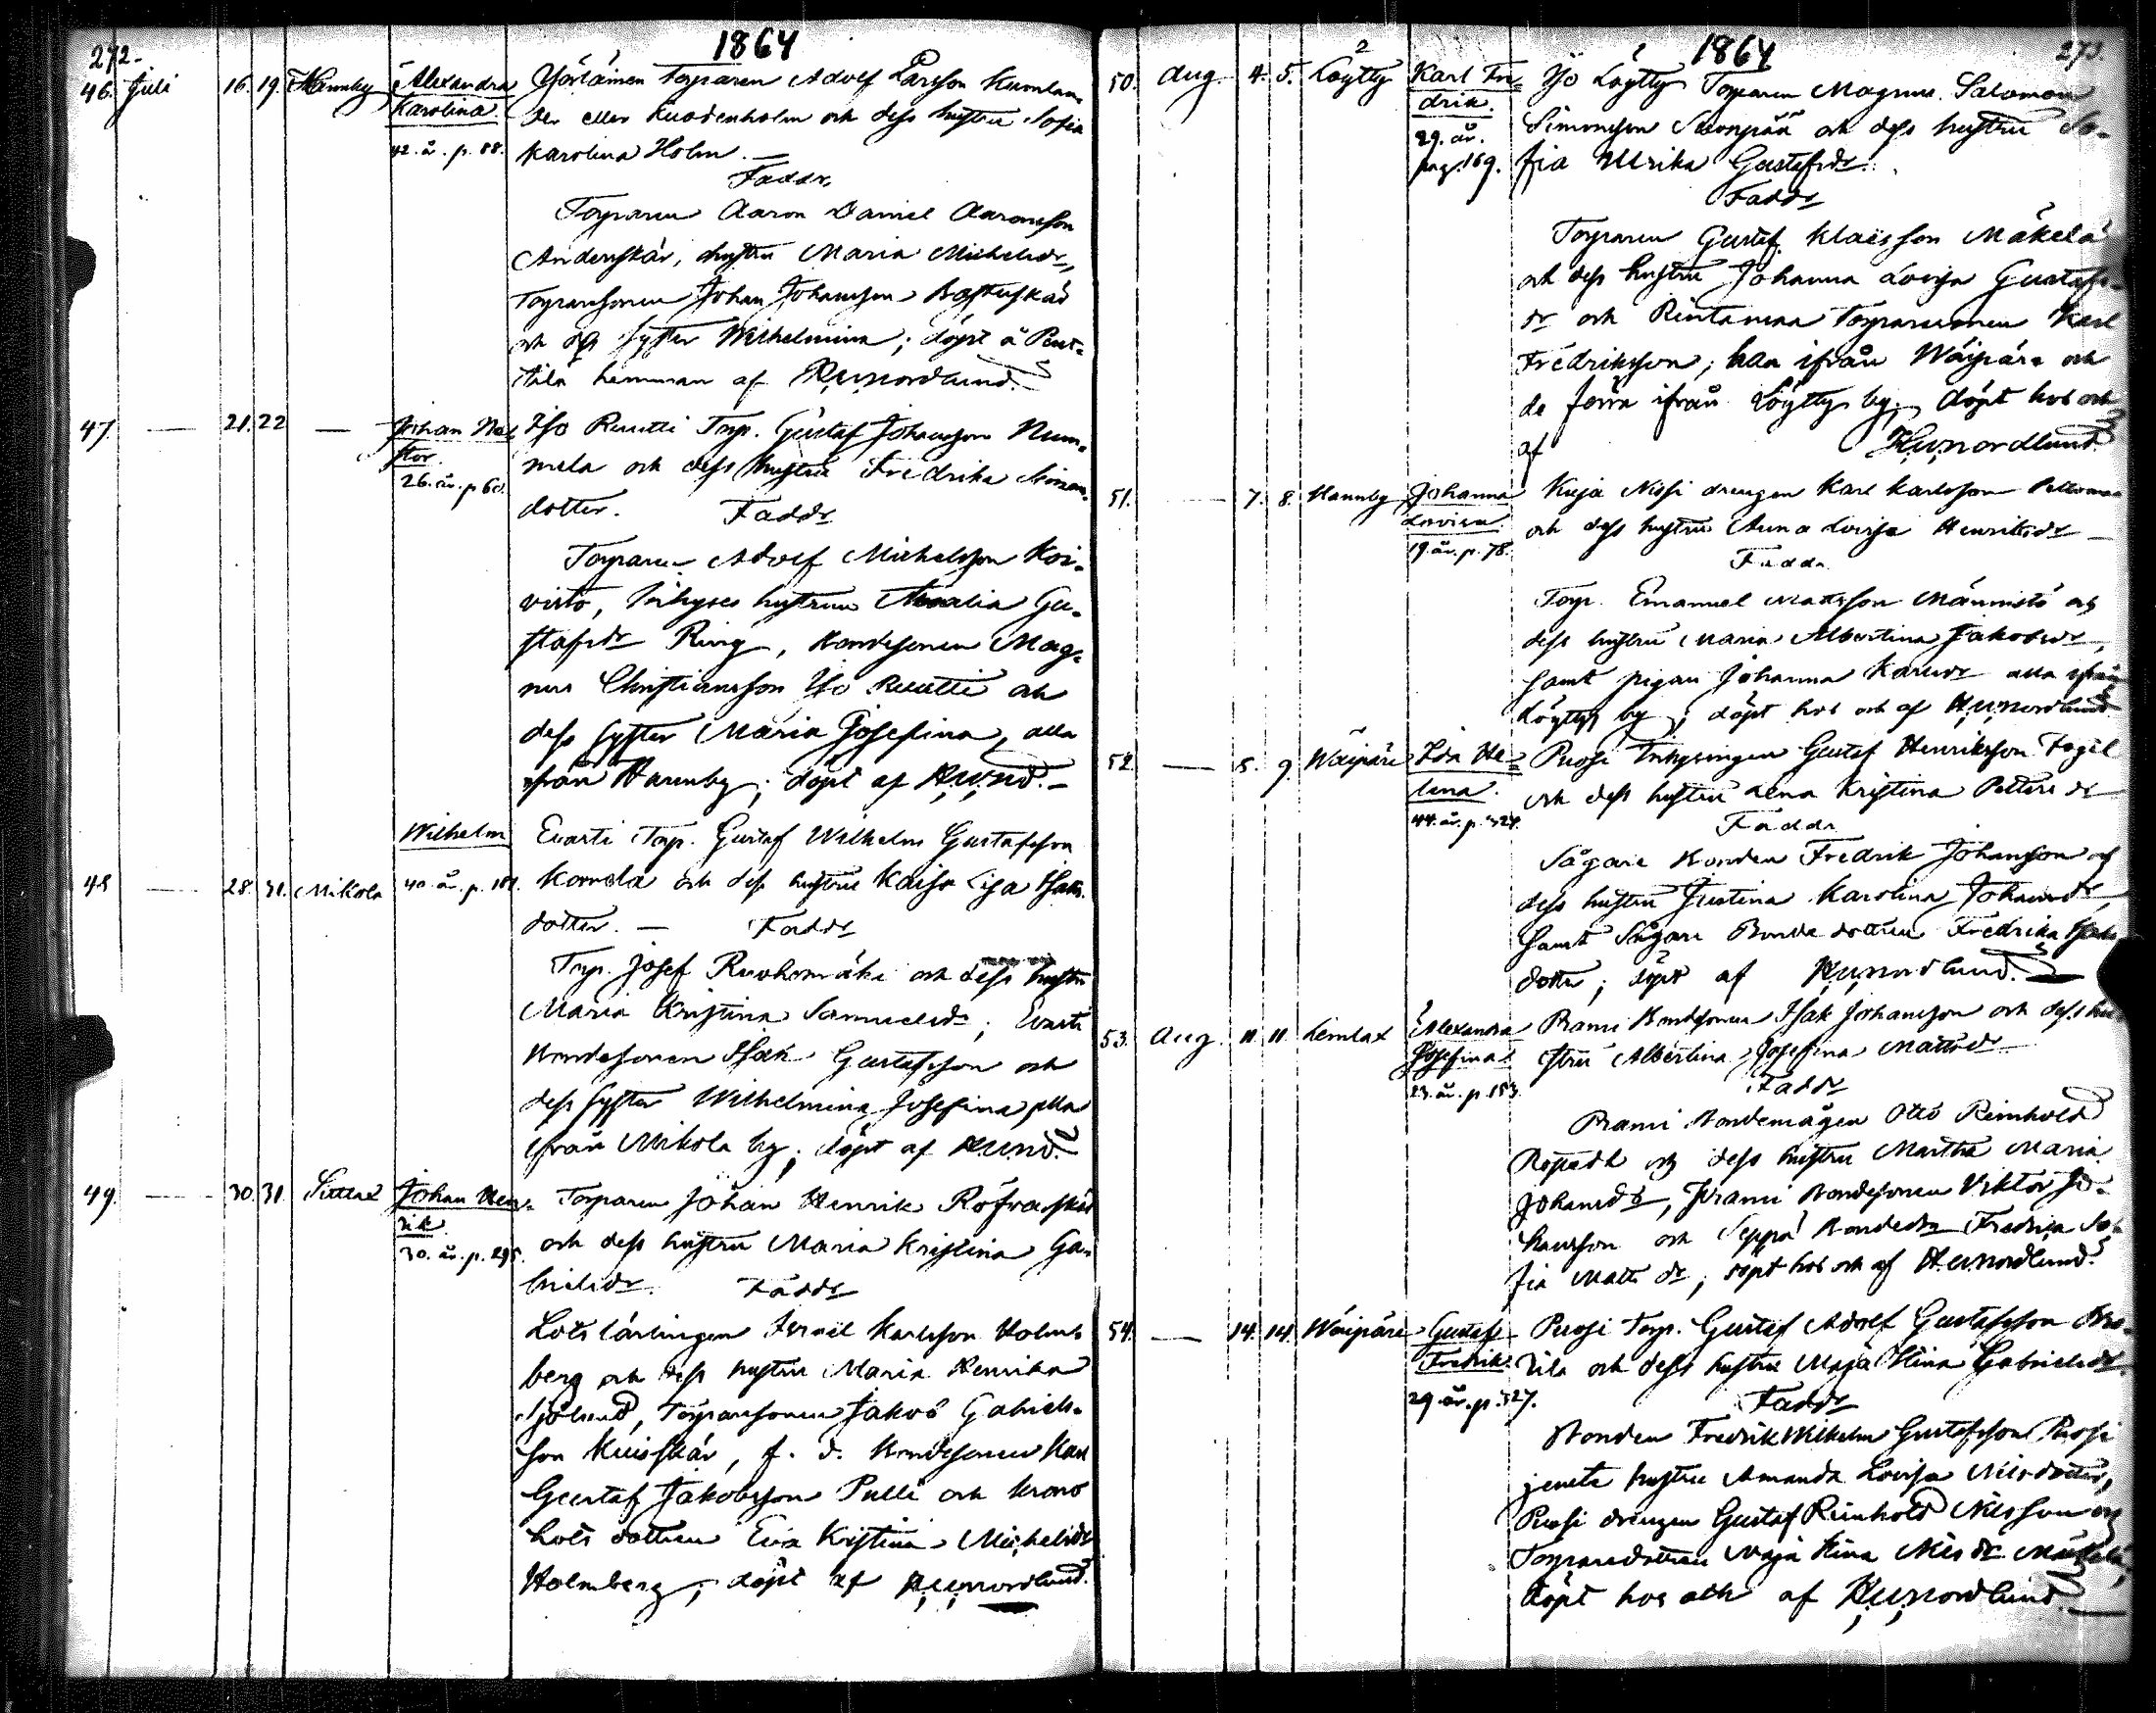 272.
1864
46. Juli 16. 19. Hannby Alexandra Karolina. 42. år. p. 88.
Torparen Adolf Larsson
och dess hustru Sofia
Karolina Holm. —
Faddr
Torparen Aaron Daniel Aaronsson
Anderskär, hustru Maria Michelsdr,
Torparesonen Johan Johansson
och dess syster Wilhelmina; döpt å Pent-
tilä hemman af HWNordlund.
47. — 21. 22 — Johan Ne-
stor.
26. år. p 60.
Iso Ruutti Torp. Gustaf Johansson Num-
mela och dess hustru Fredrika Simons-
dotter. Faddr
Torparen Adolf Michelsson Koi-
visto, Inhyses hustrun Amalia Gu-
stafsdr Ring, Bondesonen Mag-
nus Christiansson Iso Ruutti och
dess syster Maria Josefina, alla
ifrån Hannby; döpt af HWNd. —
48 — 28. 31. Mikola Wilhelm
40. år. p.
Evarti Torp. Gustaf Wilhelm Gustafsson
Komela och dess hustru Kaisa Lisa Isaks
dotter. — Faddr
Torp. Josef Ruohomäki och dess hustru
Maria Kristina Samuelsdr; Evarti
Bondesonen Isak Gustafsson och
dess syster Wilhelmina Josefina, alla
ifrån Mikola by; döpt af HWNd.
49. — 30. 31. Johan Hen-
rik
30. år. p. 295.
Torparen Johan Henrik
och dess hustru Maria Kristina Ga-
brielsdr. Faddr
Lots lärlingen Israel Karlsson Holm-
berg och dess hustru Maria Henrika
Sjölund, Torparesonen Jakob Gabriels-
son Kuisskär, f. d. Bondesonen Karl
Gustaf Jakobsson Pulli och krono
lots dottren Eva Kristina Michelsdr
Holmberg; döpt af HWNordlund.
1864
273.
50. Aug. 4. 5. Löytty Karl Fre-
drik.
29. år.
pag. 169.
Iso Löytty Torparen Magnus Salomon
Simonsson Suonpää och dess hustru So-
fia Ulrika Gustafsdr.
Faddr
Torparen Gustaf Klaësson Mäkelä
och dess hustru Johanna Lovisa Gustafs-
dr och Rintamaa Torparesonen Karl
Fredriksson; han ifrån Wäipäre och
de förra ifrån Löytty by; döpt hos och
af HWNordlund
51. — 7. 8. Hannby Johanna
Lovisa.
19. år. p. 78.
Kuja Nissi drengen Karl Karlsson
och dess hustru Anna Lovisa Henriksdr —
Faddr
Torp. Emanuel Mattsson Männistö och
dess hustru Maria Albertina Jakobsdr,
samt pigan Johanna Karlsdr alla ifrån
Löytty by; döpt hos och af HWNordlund
52. — 8. 9 Wäipäre Ida He-
lena.
44. år. p.
Puosi Inhysingen Gustaf Henriksson Fogel
och dess hustru Lena Kristina Petters dr
Faddr
Sågare Bonden Fredrik Johansson och
dess hustru Justina Karolina Johansdr,
samt Sågare Bonde dottren Fredrika Isaks
dotter; döpt af HWNordlund. —
53. Aug. 11. 11. Lemlax Alexandra
Josefina
23. år. p. 153.
Prami Bondesonen Isak Johansson och dess hu-
stru Albertina Josefina Mattsdr
Faddr
Prami Bondemågen Otto Reinhold
och dess hustru Martha Maria
Johansdr, Prami Bondesonen Viktor Jo-
hansson och Seppä Bondedr Fredrika So-
fia Matts dr; döpt hos och af HWNordlund.
54. — 14. 14. Wäipäre Gustaf
Fredrik
29 år. p.
Puosi Torp. Gustaf Adolf Gustafsson
och dess hustru Maja Stina Gabrielsdr
Faddr
Bonden Fredrik Wilhelm Gustafsson Puosi
jemte hustru Amanda Lovisa Nilsdotter,
Puosi drengen Gustaf Reinhold Nilsson och
Torparedottren Maja Stina Nils dr Mäkelä;
döpt hos och af HWNordlund. —